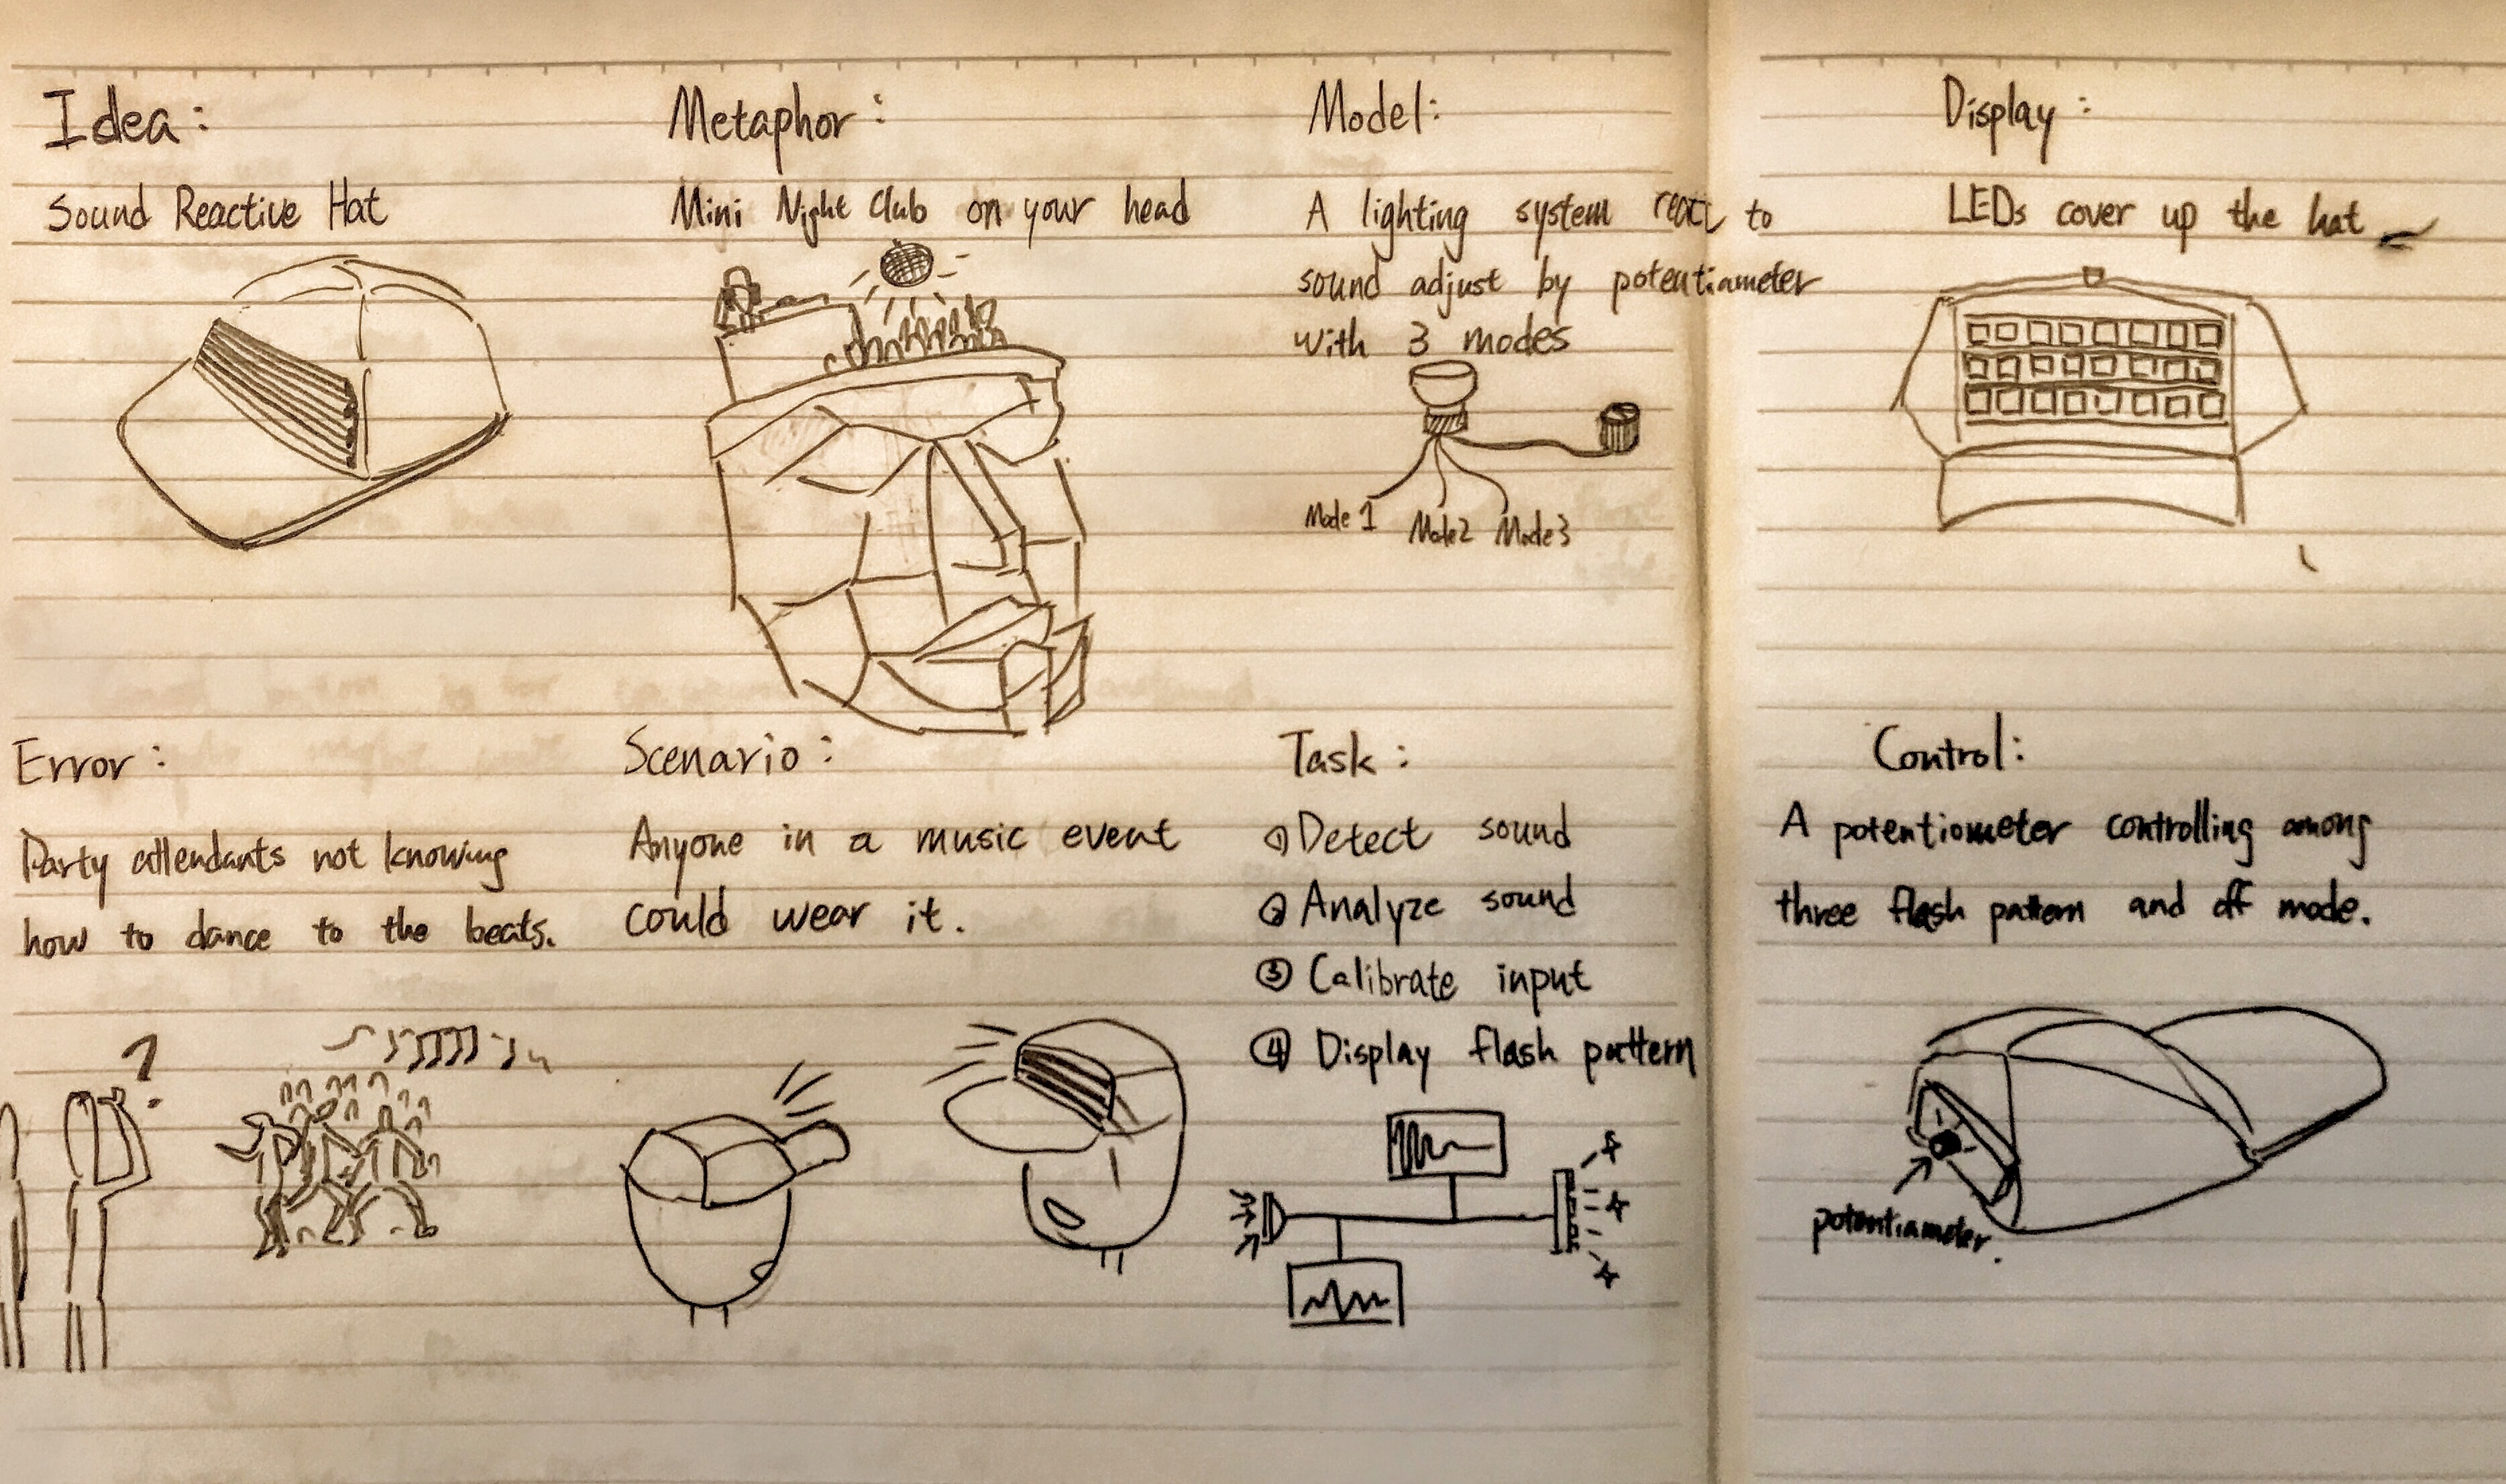 Idea:
Sound Reactive Hat
Metaphor:
Mini Night Club on your head
Model:
A lighting system react to
sound adjust by potentiameter
with 3 modes
Mode 1 Mode2 Mode3
Display:
LEDs cover up the hat
Error:
Party attendants not knowing
how to dance to the beats.
?
Scenario:
Anyone in a music event
could wear it.
Task:
① Detect sound
② Analyze sound
③ Calibrate input
④ Display flash pattern
Control:
A potentiometer controlling among
three flash pattern and off mode.
potentiameter.